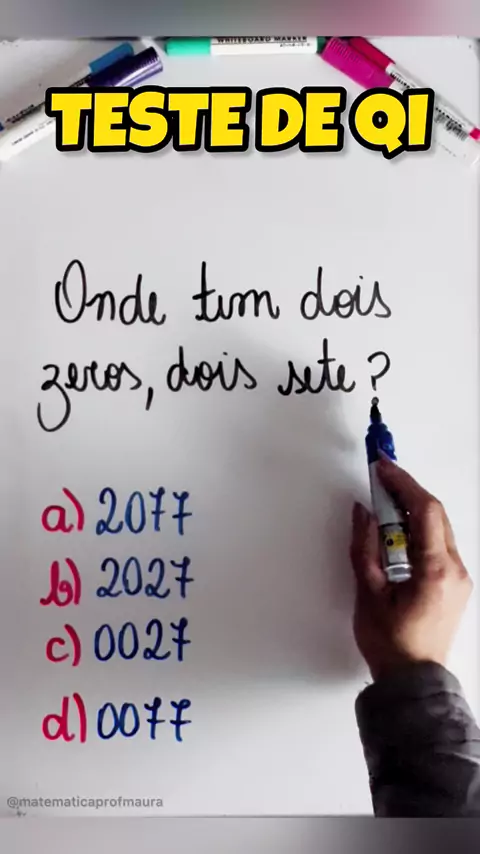 WHITEBOARD MARKER
TESTE DE QI
Onde tem dois
zeros, dois sete?
a) 2077
b) 2027
c) 0027
d) 0077
@matematicaprofmaura